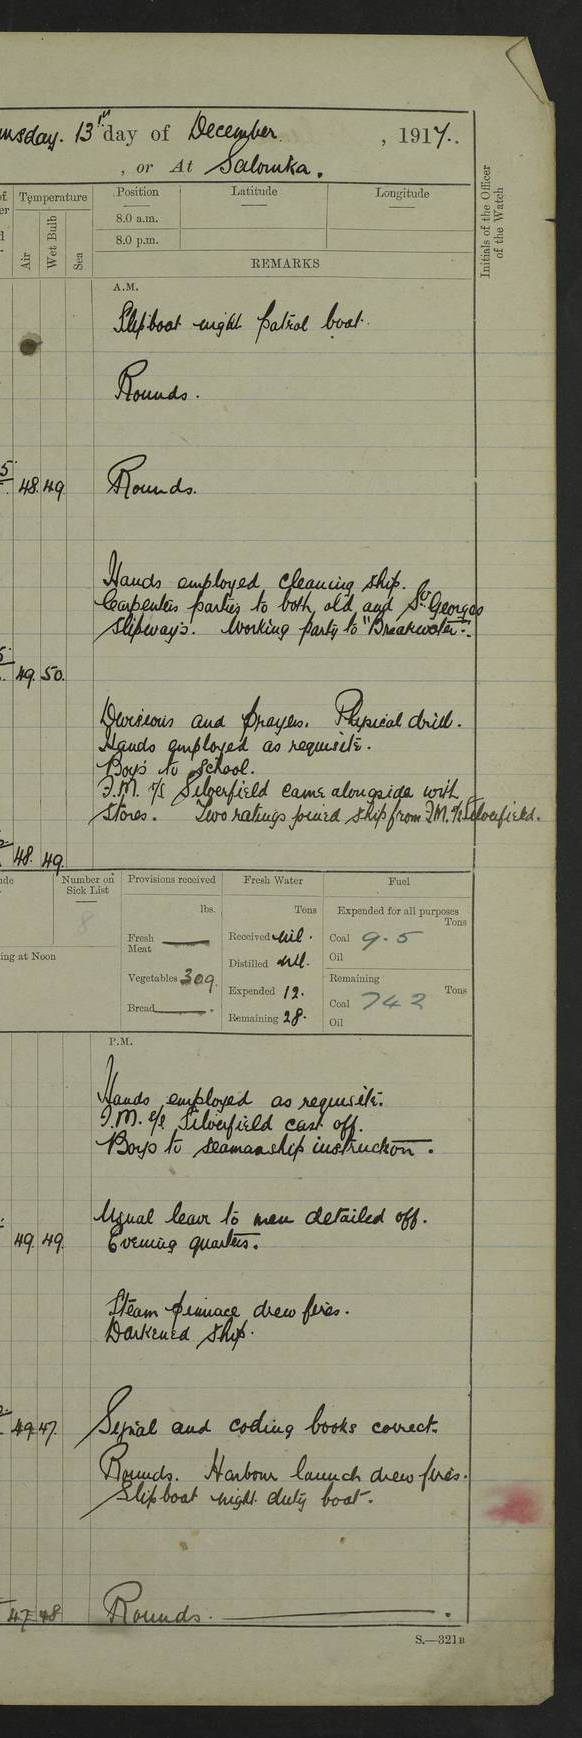 13th day of December , 1917.
, or At Salonika.
Temperature
Position Latitude Longitude
Air Wet Bulb Sea
8.0 a.m.
8.0 p.m.
Initials of the Officer
of the Watch
REMARKS
A.M.
Slipboat night patrol boat.
Rounds.
48. 49 Rounds.
Hands employed cleaning ship.
Carpenters parties to both, old and St Georges
Slipways. Working party to "Breakwater".
49. 50.
Divisions and prayers. Physical drill.
Hands employed as requisite.
Boys to School.
F.M. S/S Silverfield came alongside with
stores. Two ratings joined ship from F.M. S/S Silverfield.
48. 49.
Number on
Sick List
8
Provisions received Fresh Water Fuel
lbs. Tons Expended for all purposes
Tons
Fresh
Meat
Received Nil. Coal 9.5
Distilled Nil. Oil
Vegetables 309 Remaining
Expended 12. Tons
Coal 742
Bread Remaining 28. Oil
ing at Noon
P.M.
Hands employed as requisite.
F.M. S/S Silverfield cast off.
Boys to seamanship instruction.
Usual leave to men detailed off.
49. 49. Evening quarters.
Steam pinnace drew fires.
Darkened ship.
49 47. Signal and coding books correct.
Rounds. Harbour launch drew fires.
Slipboat night duty boat.
47 48 Rounds.
S.—321B